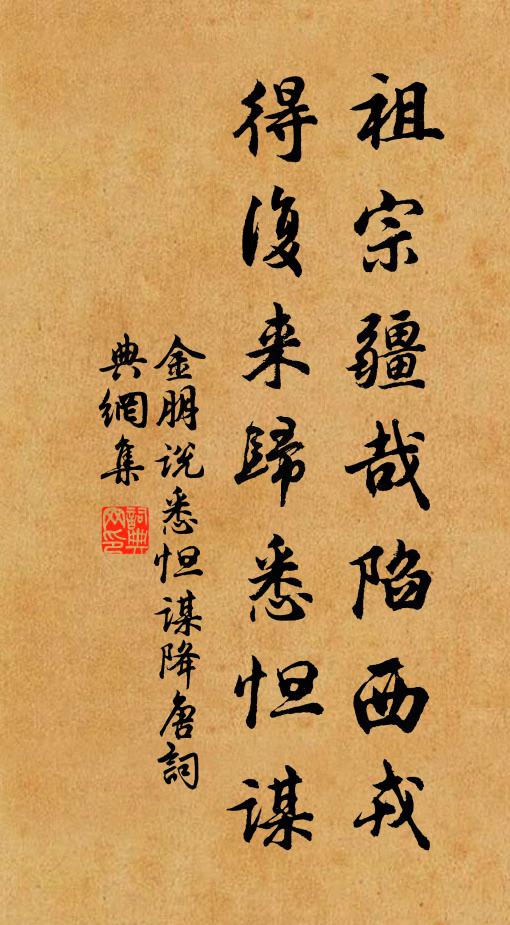 祖宗疆哉陷西戎
得復来歸悉怛謀
金朋说悉怛謀降唐詞
典網集
詞典網印